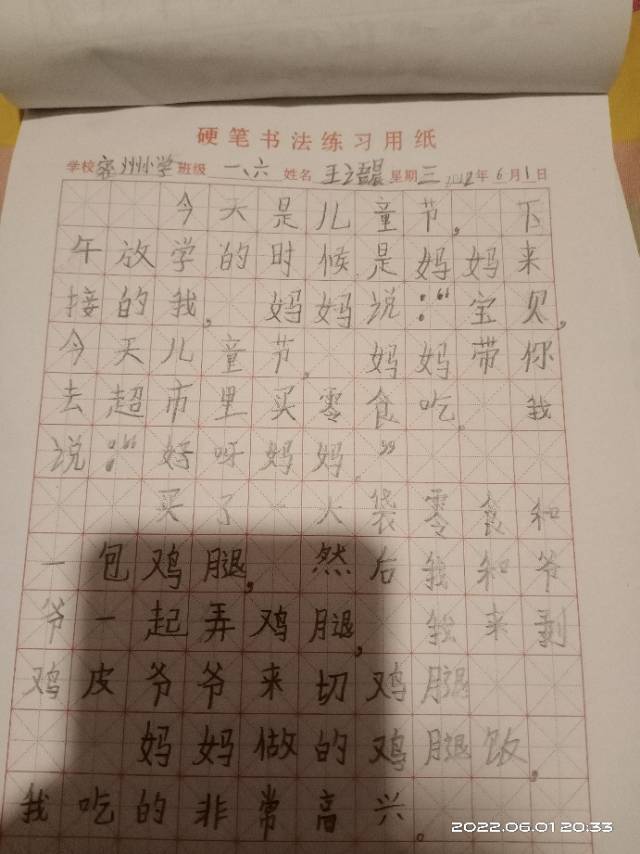 硬笔书法练习用纸
学校 密州小学 班级 一、六 姓名 王 星期 三 2022年6月1日
今天是儿童节，下
午放学的时候是妈妈来
接的我，妈妈说：“宝贝，
今天儿童节，妈妈带你
去超市里买零食吃。我
说：“好呀妈妈。”
买了一大袋零食和
一包鸡腿，然后我和爷
爷一起弄鸡腿，我来剥
鸡皮爷爷来切鸡腿
妈妈做的鸡腿饭，
我吃的非常高兴。
2022.06.01 20:33